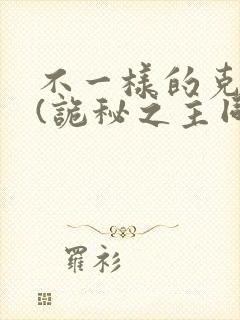 不一樣的克
(詭秘之主同
羅衫